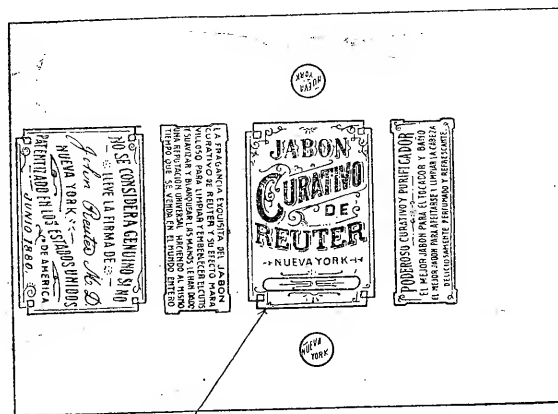 NO SE CONSIDERA GENUINO SI NO
LLEVE LA FIRMA DE
John Reuter M.D
NUEVA YORK.
PATENTIZADO EN LOS ESTADOS UNIDOS
DE AMERICA
JUNIO 1880.
LA FRAGANCIA EXQUISITA DEL JABON
CURATIVO DE REUTER Y SU EFECTO MARA
VILLOSO PARA LIMPIAR Y EMBELLECER EL CUTIS
Y SUAVIZAR Y BLANQUEAR LAS MANOS LE HAN DADO
UNA REPUTACION UNIVERSAL HACIENDO AL MISMO
TIEMPO QUE SE VENDA EN EL MUNDO ENTERO
NUEVA
YORK
JABON
CURATIVO
DE
REUTER
NUEVA YORK
NUEVA
YORK
PODEROSO, CURATIVO Y PURIFICADOR
EL MEJOR JABON PARA EL TOCADOR Y BAÑO
EL MEJOR JABON PARA AFEITARSE Y LIMPIAR LA CABEZA
DELICIOSAMENTE PERFUMADO Y REFRESCANTE.